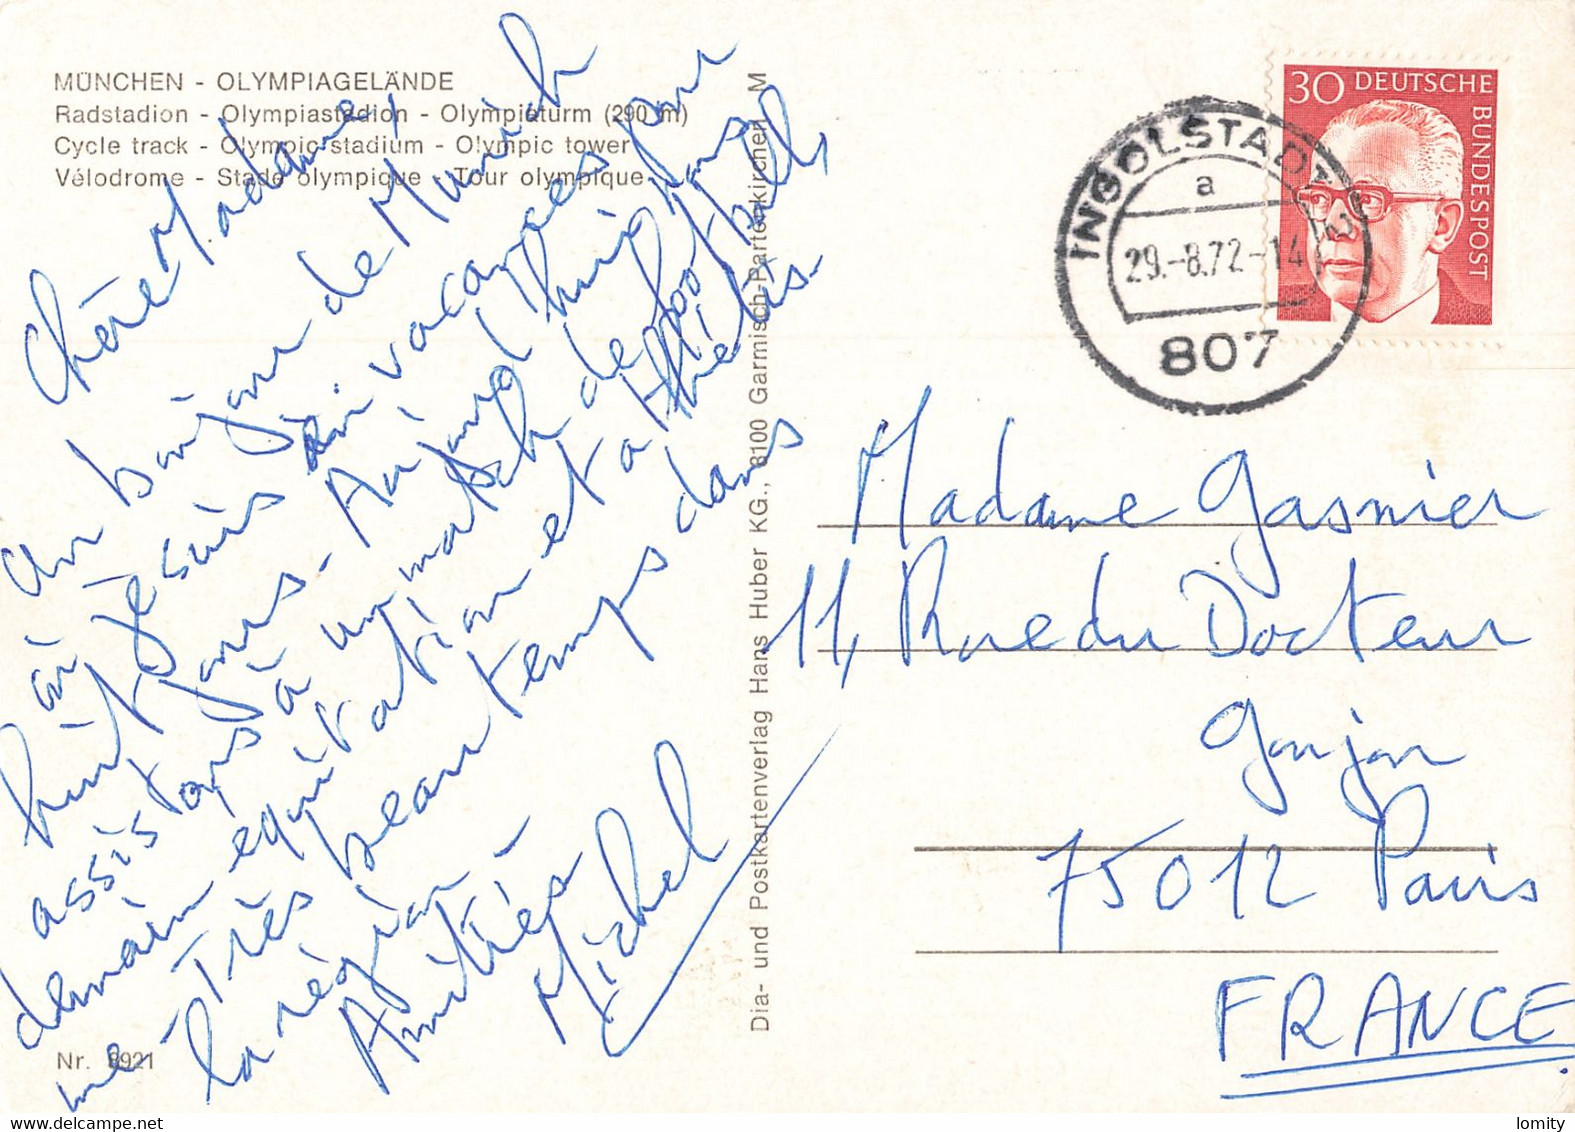 MÜNCHEN - OLYMPIAGELÄNDE
Radstadion - Olympiastadion - Olympiaturm (290 m)
Cycle track - Olympic stadium - Olympic tower
Vélodrome - Stade olympique - Tour olympique
Chère Madame,
Un bonjour de Munich
où je suis en vacances pour
huit jours - Aujourd'hui, nous
assistons à un match de football
demain équitation et athlétis-
me - Très beau temps dans
la région
Amitiés
Michel
Nr. 8921
Dia- und Postkartenverlag Hans Huber KG., 8100 Garmisch-Partenkirchen M
INGOLSTADT 2
a
29.-8.72-14
807
30 DEUTSCHE
BUNDESPOST
Madame Gasnier
11, Rue du Docteur
Goujon
75012 Paris
FRANCE
lomity